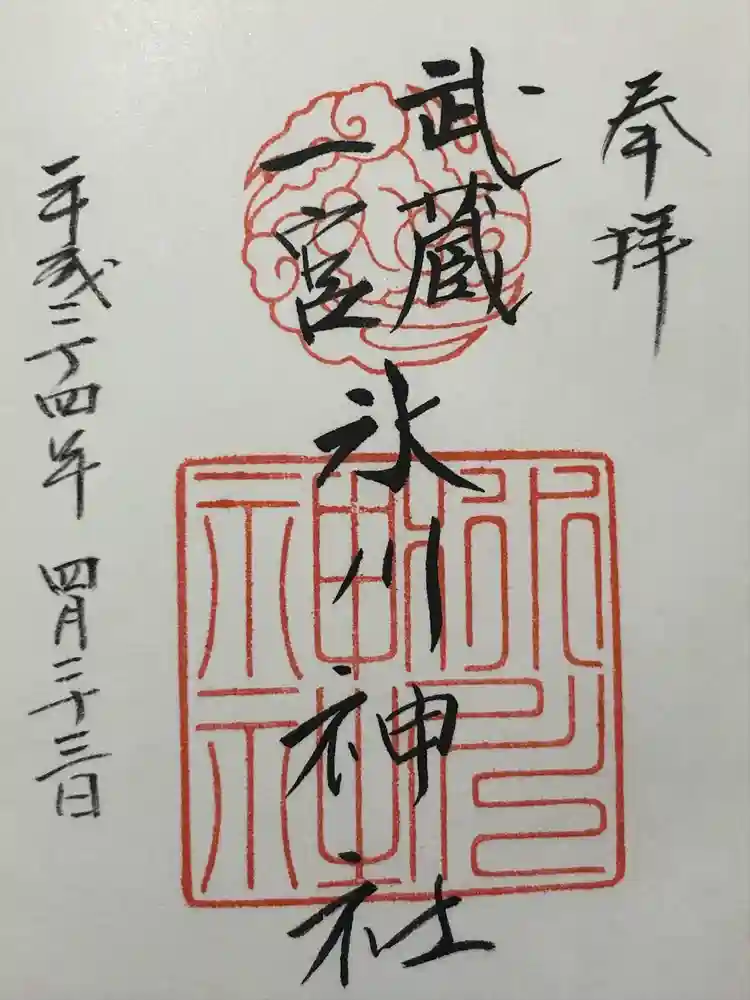 奉拝
武蔵
一宮
氷川神社
平成二十四年 四月二十三日
氷川神社